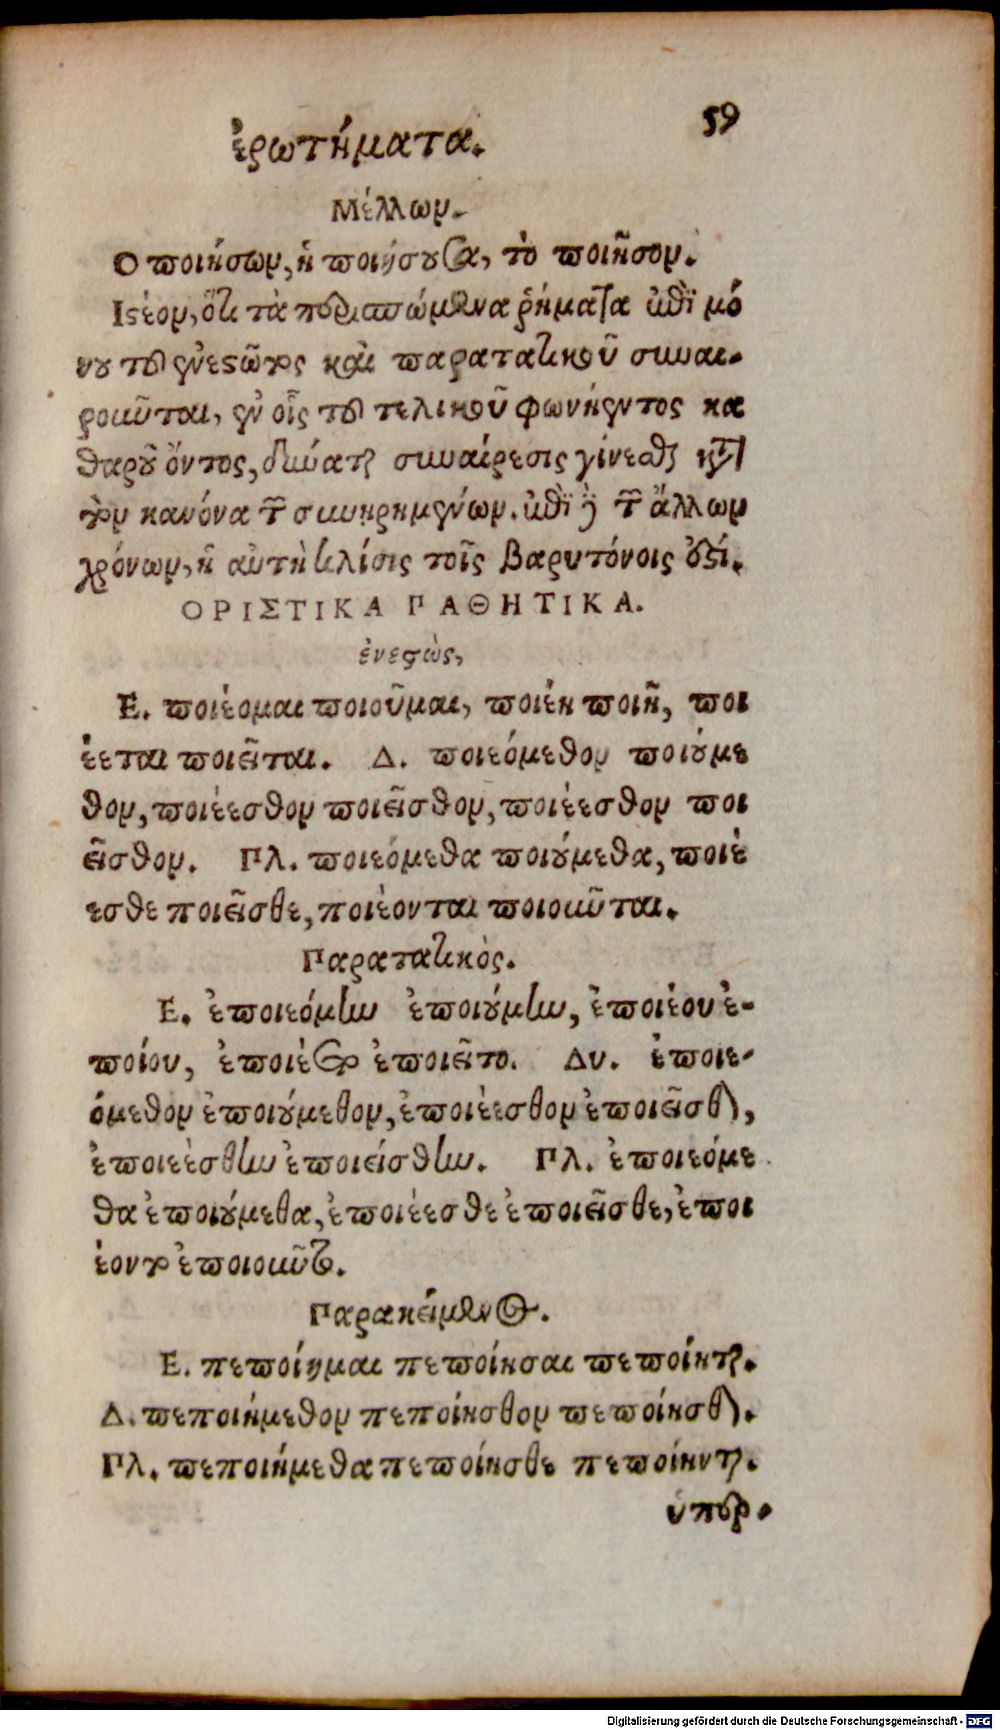 59
ἐρωτήματα.
Μέλλων.
Ο ποιήσων, ἡ ποιήσουσα, τὸ ποιῆσον.
Ιστέον, ὅτι τὰ περισπώμενα ῥήματα ἐπὶ μό
νου τοῦ ἐνεστῶτος καὶ παρατατικοῦ συναι-
ροῦνται, ἐν οἷς τοῦ τελικοῦ φωνήεντος κα
θαροῦ ὄντος, δύναται συναίρεσις γίνεσθαι κατὰ
τὸν κανόνα τῶν συνῃρημένων. ἐπὶ δὲ τῶν ἄλλων
χρόνων, ἡ αὐτὴ κλίσις τοῖς βαρυτόνοις ἐστί.
ΟΡΙΣΤΙΚΑ ΠΑΘΗΤΙΚΑ.
ἐνεστὼς,
Ε. ποιέομαι ποιοῦμαι, ποιέη ποιῆ, ποι
έεται ποιεῖται. Δ. ποιεόμεθον ποιούμε
θον, ποιέεσθον ποιεῖσθον, ποιέεσθον ποι
εῖσθον. Πλ. ποιεόμεθα ποιούμεθα, ποιέ
εσθε ποιεῖσθε, ποιέονται ποιοῦνται.
Παρατατικὸς.
Ε. ἐποιεόμην ἐποιούμην, ἐποιέου ἐ-
ποίου, ἐποιέετο ἐποιεῖτο. Δυ. ἐποιε-
όμεθον ἐποιούμεθον, ἐποιέεσθον ἐποιεῖσθον,
ἐποιεέσθην ἐποιείσθην. Πλ. ἐποιεόμε
θα ἐποιούμεθα, ἐποιέεσθε ἐποιεῖσθε, ἐποι
έοντο ἐποιοῦντο.
Παρακείμενος.
Ε. πεποίημαι πεποίησαι πεποίηται.
Δ. πεποιήμεθον πεποίησθον πεποίησθον.
Πλ. πεποιήμεθα πεποίησθε πεποίηνται.
ὑπερ.
Digitalisierung gefördert durch die Deutsche Forschungsgemeinschaft - DFG